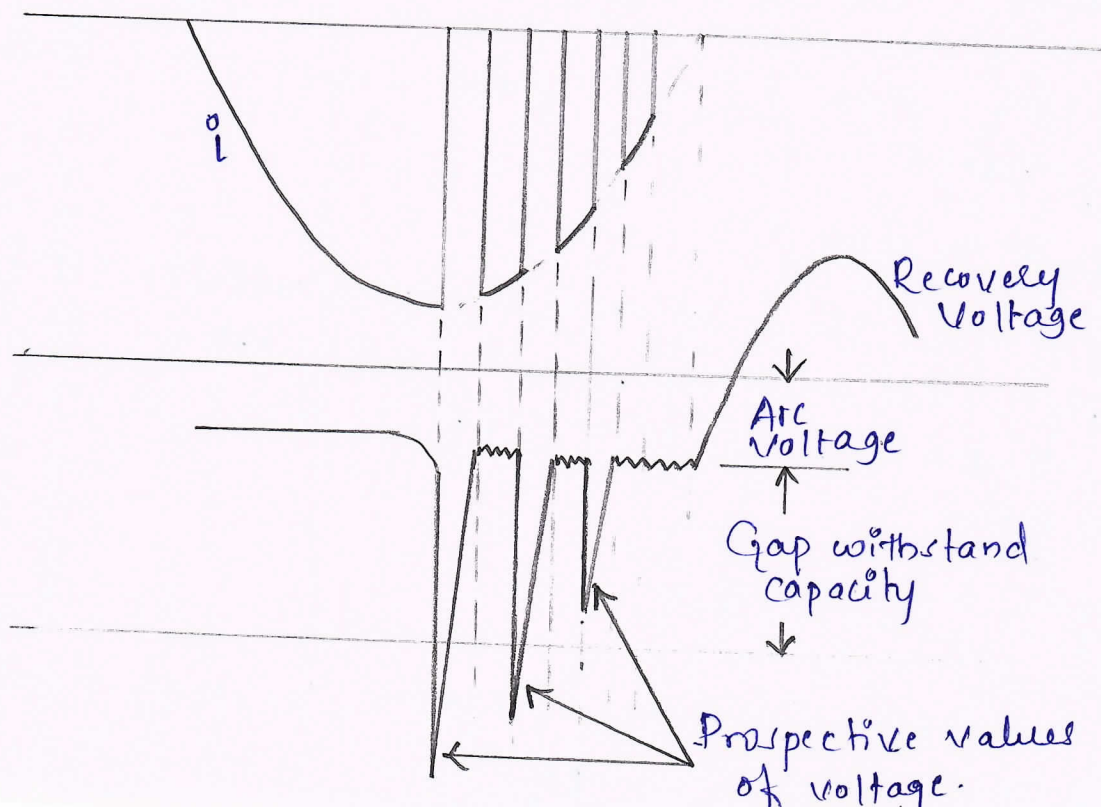 i
Recovery
Voltage
Arc
Voltage
Gap withstand
capacity
Prospective values
of voltage.